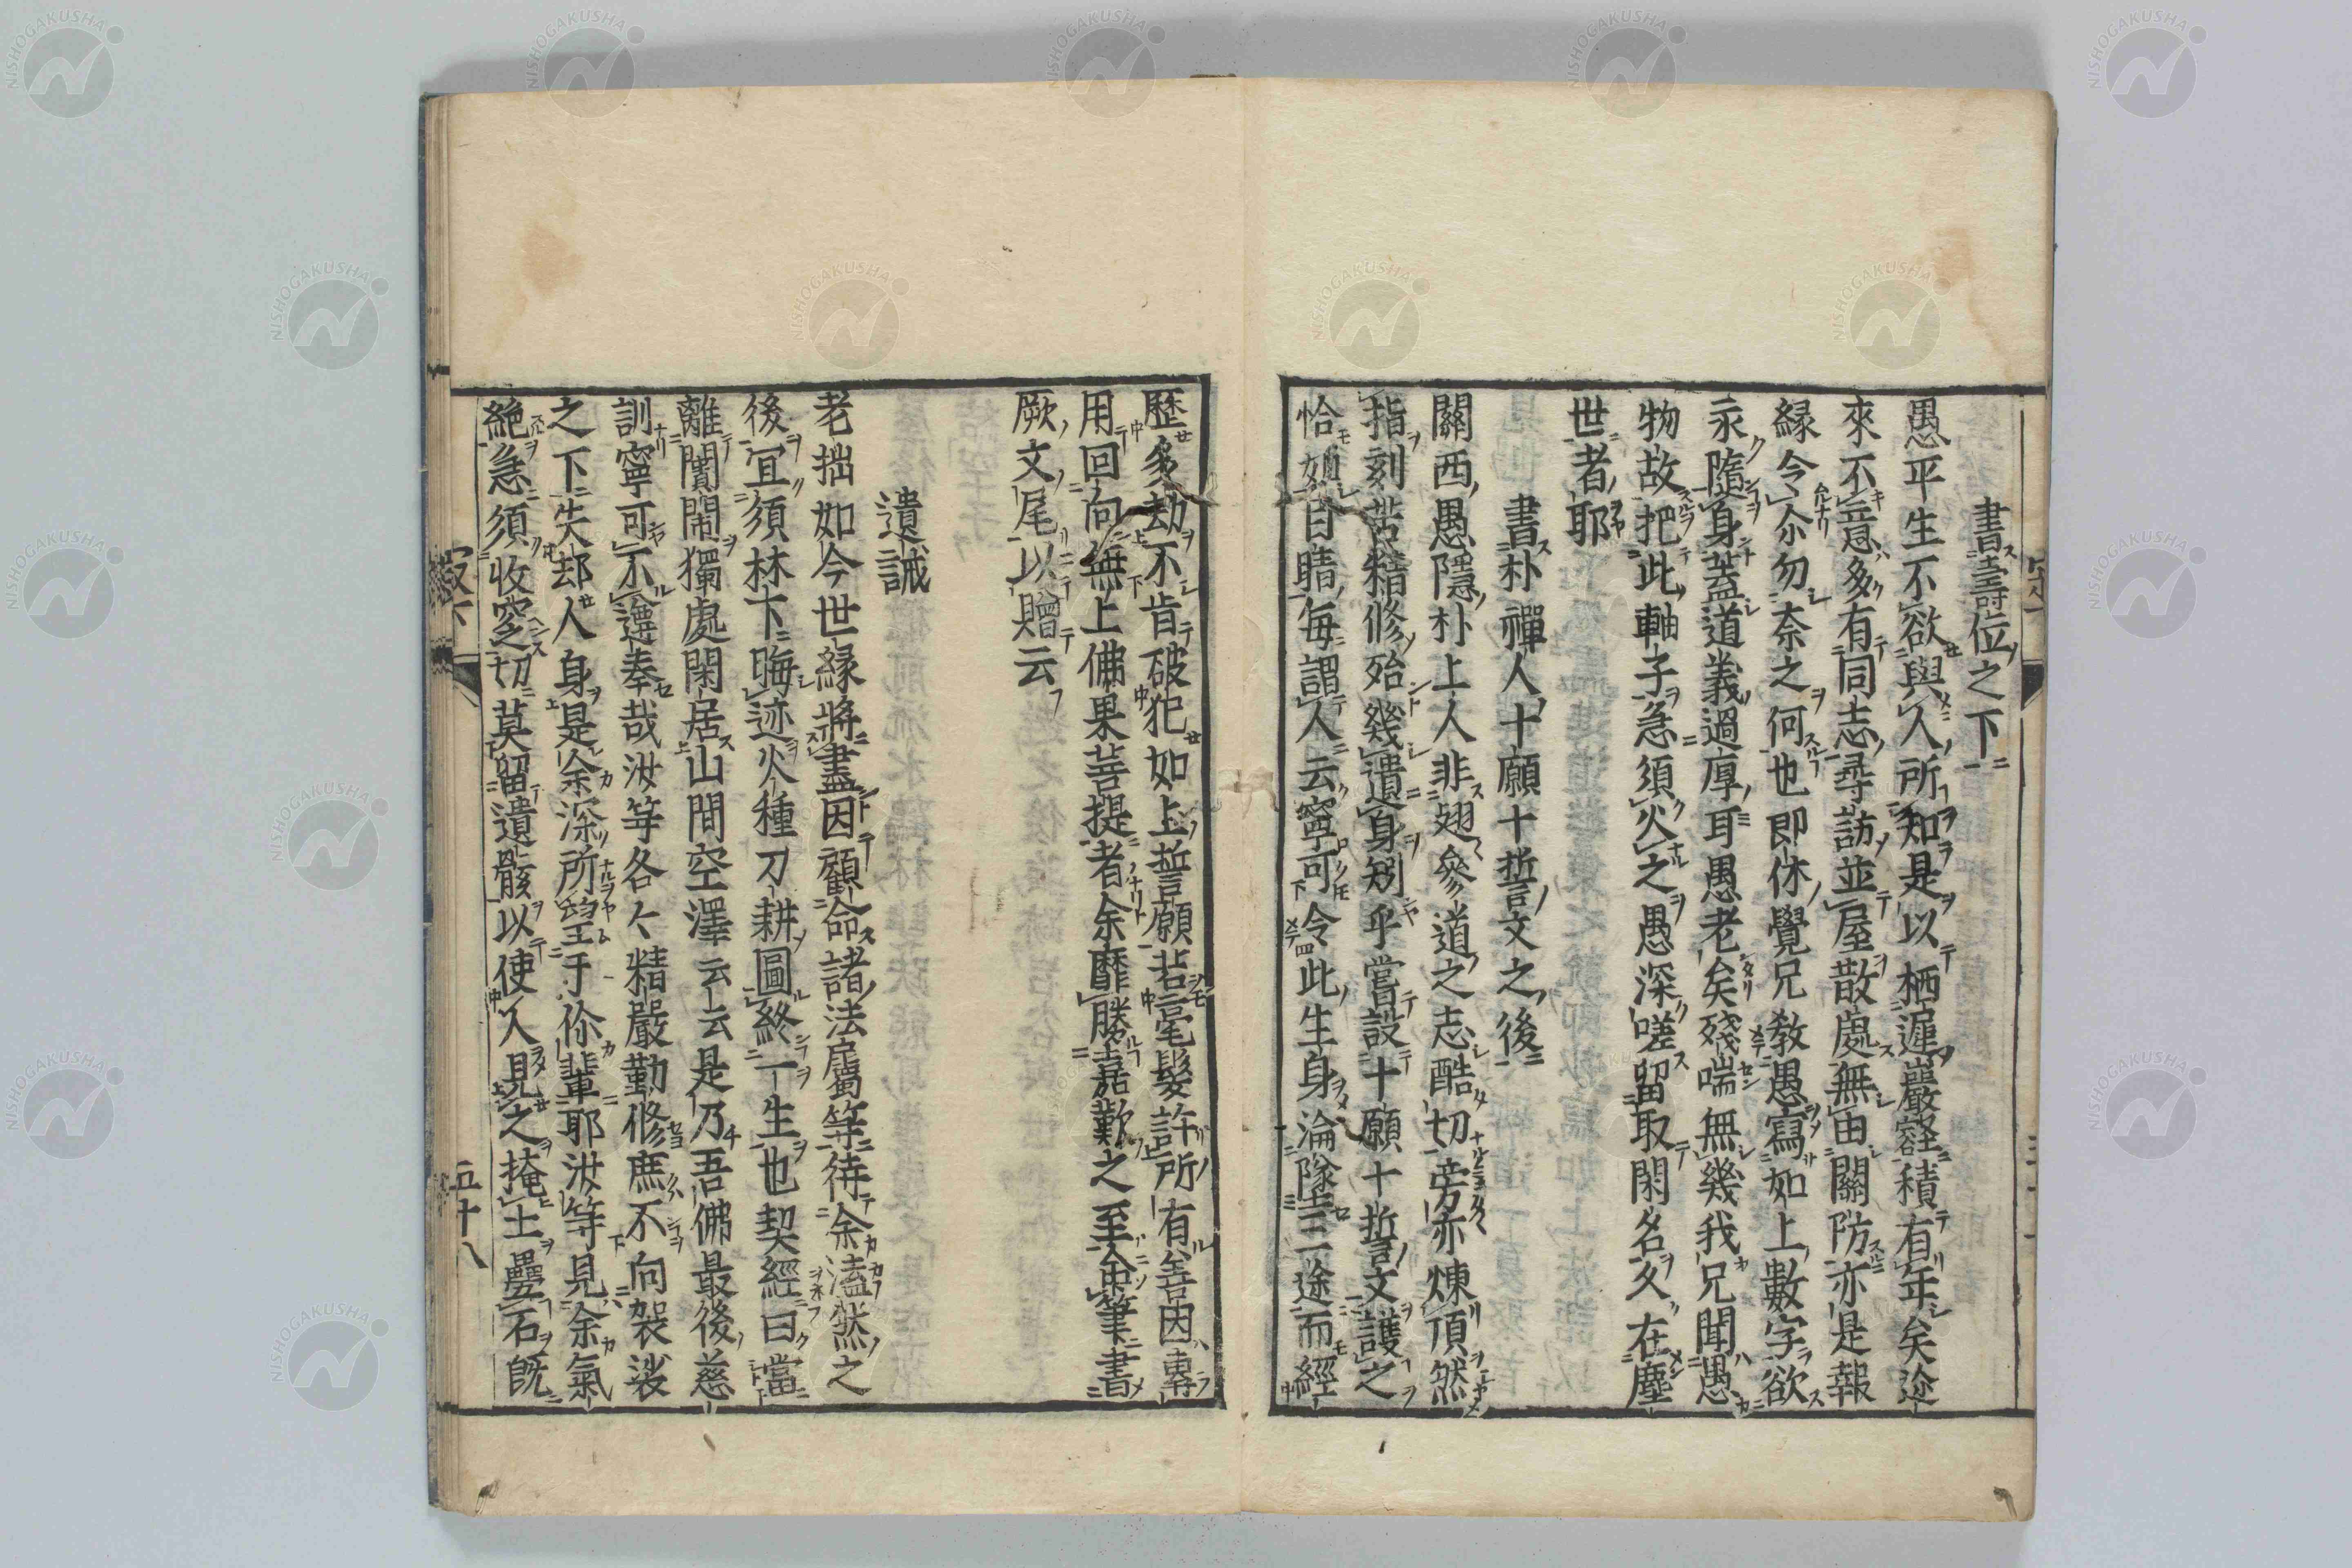 書壽位之下
愚平生不欲與人所知是以栖遲巖壑積有年矣途
來不意多有同志尋訪並屋散處無由關防亦是報
緣令尒勿奈之何也即休覺兄教愚寫如上數字欲
永隨身葢道義過厚耳愚老矣殘喘無幾我兄聞愚
物故把此軸子急須火之愚深嗟留取閑名久在塵
世者耶
書朴禪人十願十誓文之後
關西愚隱朴上人非翅參道之志酷切旁亦煉頂然
指刻苦精修殆幾遺身矧乎嘗設十願十誓文護之
恰如目睛每謂人云寧可令此生身淪墜三途而經
歷多劫不肯破犯如上誓願若毫髮許所有善因專
用回向無上佛果菩提者余靡勝嘉歎之至命筆書
厥文尾以贈云
遺誡
老拙如今世緣將盡因顧命諸法屬等待余溘然之
後宜須林下晦迹火種刀耕圖終一生也契經曰當
離闤閙獨處閑居山間空澤云云是乃吾佛最後慈
訓寧可不遵奉哉汝等各々精嚴勤修庶不向袈裟
之下失却人身是余深所望于你輩耶汝等見余氣
絶急須收窆切莫留遺骸以使人見之掩土疊石旣
五十八
NISHOGAKUSHA